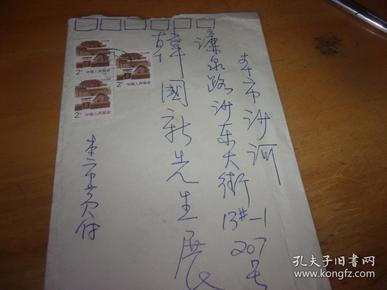 本市沙河
濂泉路沙东大街
13#-1
207号
韓國新先生展
本市黄付
中国人民邮政
2分
中国人民邮政
2分
中国人民邮政
2分
孔夫子旧书网